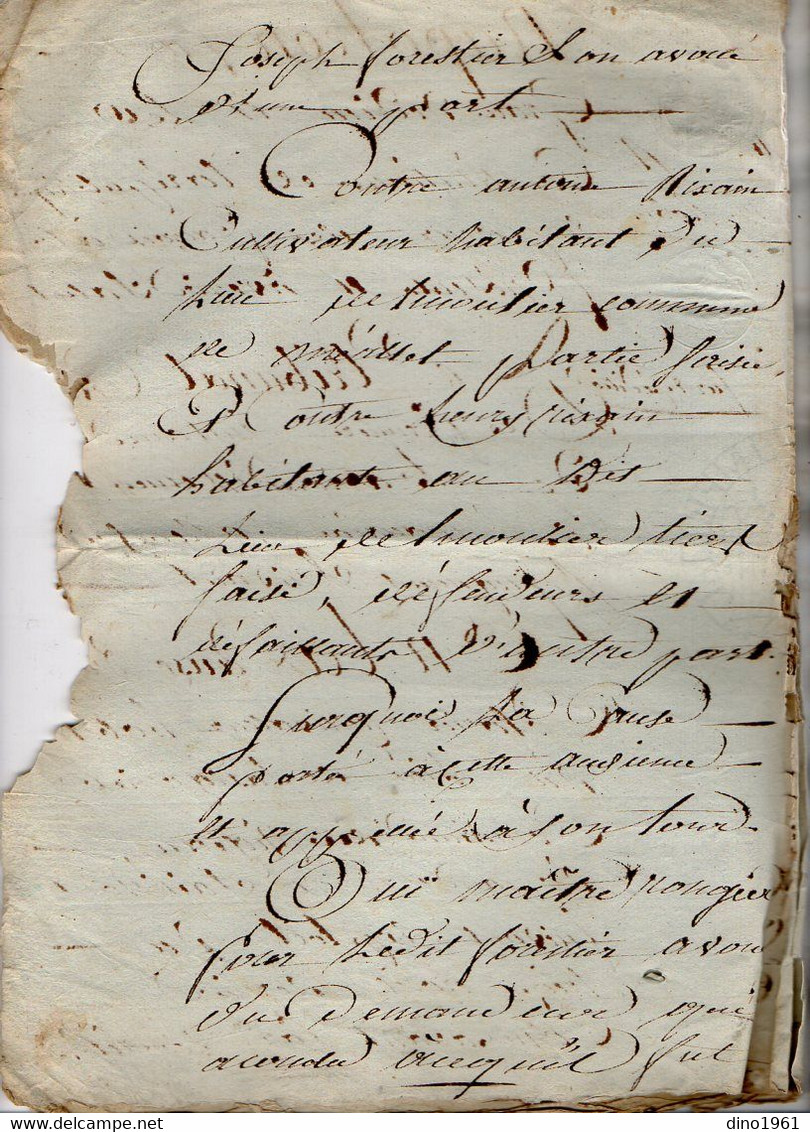 Joseph forestier Son avoué
d'une part
Contre antoine Rixain
Cultivateur habitant du
Lieu de moulier commune
de meallet partie saisie,
Et Contre Leurs rixain
habitants au dit
Lieu de moulier tiers
saisi, défendeurs et
défaillants d'autre part.
Surquoi La Cause
porté à cette audience
et appellée à Son tour
Oui maître rongier
pour Ledit forestier avoué
du demandeur qui
a conclu acequ'il fut
dino1961